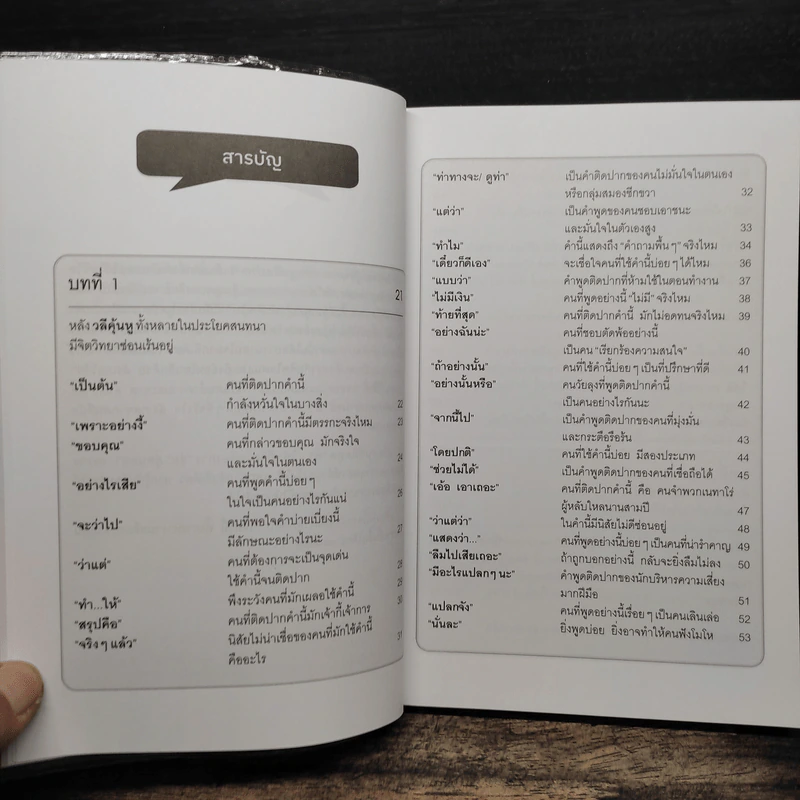 สารบัญ
บทที่ 1 21
หลัง วลีคุ้นหู ทั้งหลายในประโยคสนทนา
มีจิตวิทยาซ่อนเร้นอยู่
"เป็นต้น" คนที่ติดปากคำนี้
กำลังหวั่นใจในบางสิ่ง 22
"เพราะอย่างงี้" คนที่ติดปากคำนี้มีตรรกะจริงไหม 23
"ขอบคุณ" คนที่กล่าวขอบคุณ มักจริงใจ
และมั่นใจในตนเอง 24
"อย่างไรเสีย" คนที่พูดคำนี้บ่อย ๆ
ในใจเป็นคนอย่างไรกันแน่ 26
"จะว่าไป" คนที่พอใจคำบ่ายเบี่ยงนี้
มีลักษณะอย่างไรนะ 27
"ว่าแต่" คนที่ต้องการจะเป็นจุดเด่น
ใช้คำนี้จนติดปาก 28
"ทำ...ให้" พึงระวังคนที่มักเผลอใช้คำนี้
"สรุปคือ" คนที่ติดปากคำนี้มักเจ้ากี้เจ้าการ 30
"จริง ๆ แล้ว" นิสัยไม่น่าเชื่อของคนที่มักใช้คำนี้
คืออะไร 31
"ท่าทางจะ/ ดูท่า" เป็นคำติดปากของคนไม่มั่นใจในตนเอง
หรือกลุ่มสมองซีกขวา 32
"แต่ว่า" เป็นคำพูดของคนชอบเอาชนะ
และมั่นใจในตัวเองสูง 33
"ทำไม" คำนี้แสดงถึง "คำถามพื้น ๆ" จริงไหม 34
"เดี๋ยวก็ดีเอง" จะเชื่อใจคนที่ใช้คำนี้บ่อย ๆ ได้ไหม 36
"แบบว่า" คำพูดติดปากที่ห้ามใช้ในตอนทำงาน 37
"ไม่มีเงิน" คนที่พูดอย่างนี้ "ไม่มี" จริงไหม 38
"ท้ายที่สุด" คนที่ติดปากคำนี้ มักไม่อดทนจริงไหม 39
"อย่างฉันน่ะ" คนที่ชอบตัดพ้ออย่างนี้
เป็นคน "เรียกร้องความสนใจ" 40
"ถ้าอย่างนั้น" คนที่ใช้คำนี้บ่อย ๆ เป็นที่ปรึกษาที่ดี 41
"อย่างนั้นหรือ" คนวัยลุงที่พูดติดปากคำนี้
เป็นคนอย่างไรกันนะ 42
"จากนี้ไป" เป็นคำพูดติดปากของคนที่มุ่งมั่น
และกระตือรือร้น 43
"โดยปกติ" คนที่ใช้คำนี้บ่อย มีสองประเภท 44
"ช่วยไม่ได้" เป็นคำพูดติดปากของคนที่เชื่อถือได้ 45
"เอ้อ เอาเถอะ" คนที่ติดปากคำนี้ คือ คนจำพวกเนทาโร่
ผู้หลับใหลนานสามปี 47
"ว่าแต่ว่า" ในคำนี้มีนิสัยไม่ดีซ่อนอยู่ 48
"แสดงว่า..." คนที่พูดอย่างนี้บ่อย ๆ เป็นคนที่น่ารำคาญ 49
"ลืมไปเสียเถอะ" ถ้าถูกบอกอย่างนี้ กลับจะยิ่งลืมไม่ลง 50
"มีอะไรแปลกๆ นะ" คำพูดติดปากของนักบริหารความเสี่ยง
มากฝีมือ 51
"แปลกจัง" คนที่พูดอย่างนี้เรื่อย ๆ เป็นคนเลินเล่อ 52
"นั่นละ" ยิ่งพูดบ่อย ยิ่งอาจทำให้คนฟังโมโห 53